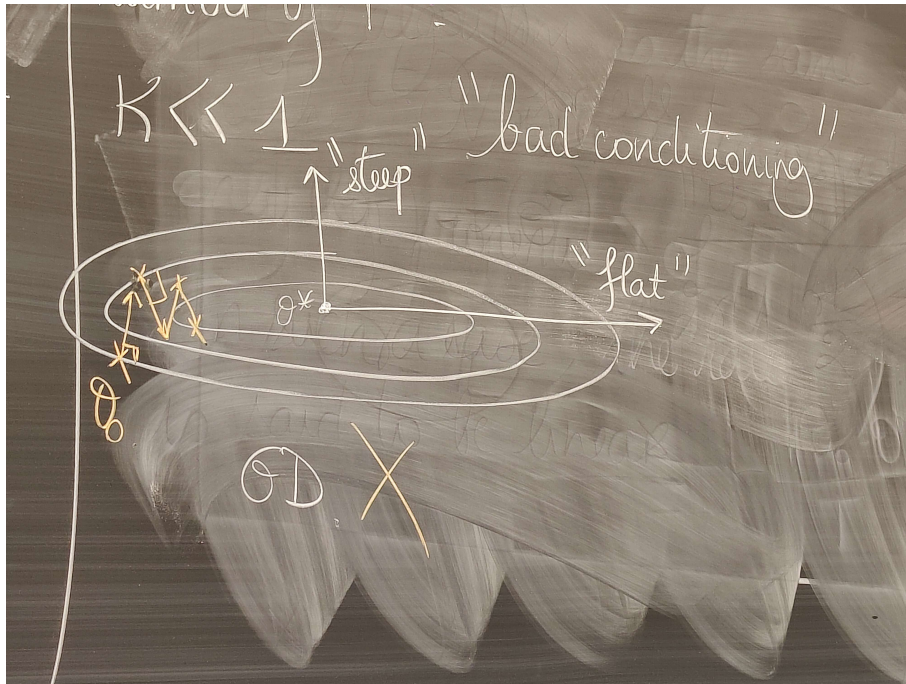 K << 1 "bad conditioning"
"steep"
"flat"
θ*
θ₀
GD